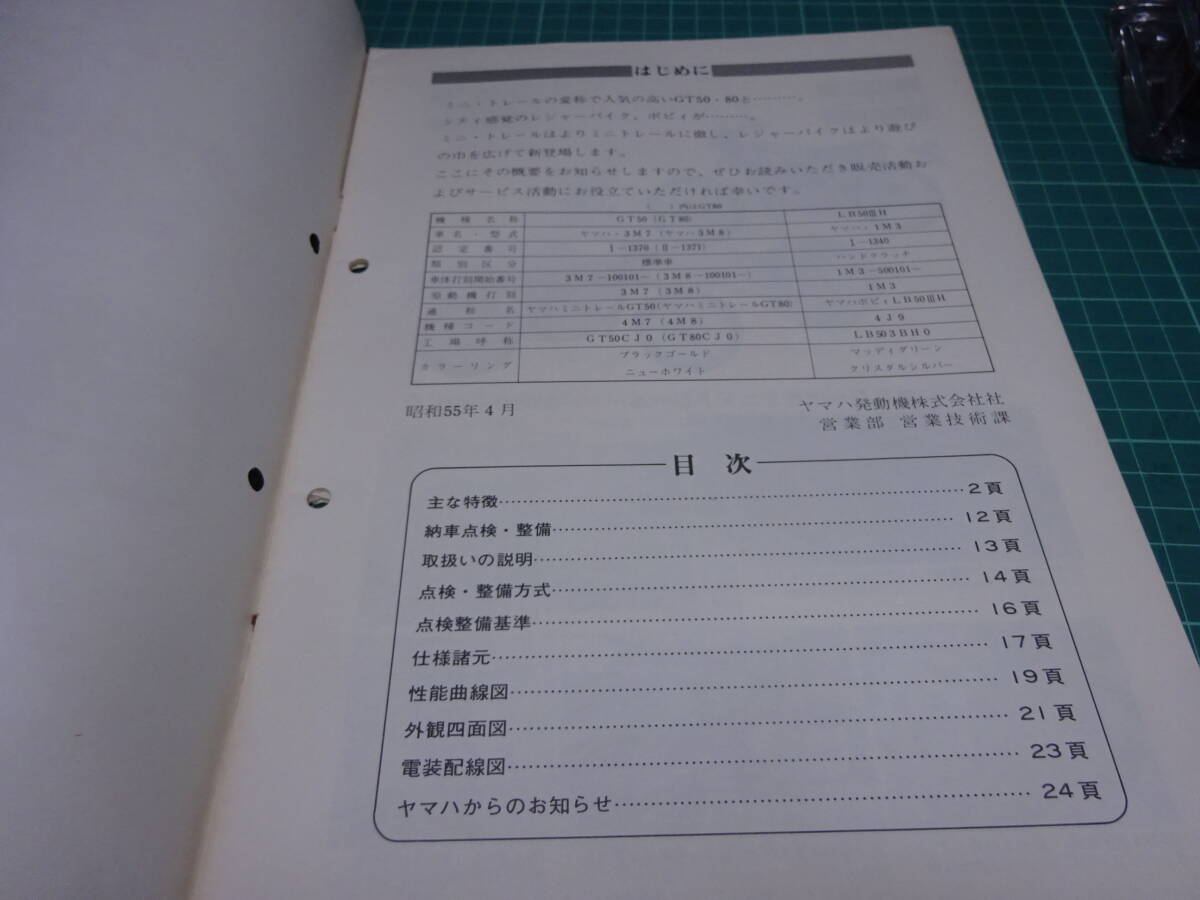 はじめに
ミニ・トレールの愛称で人気の高いGT50・80と………。
シティ感覚のレジャーバイク、ボビィが………。
ミニ・トレールはよりミニトレールに徹し、レジャーバイクはより遊び
の巾を広げて新登場します。
ここにその概要をお知らせしますので、ぜひお読みいただき販売活動お
よびサービス活動にお役立ていただければ幸いです。
( )内はGT80
機種名称 GT50 (GT80) LB50ⅢH
車名・型式 ヤマハ・3M7 (ヤマハ3M8) ヤマハ・1M3
認定番号 Ⅰ-1370 (Ⅱ-1371) Ⅰ-1340
類別区分 標準車 ハンドクラッチ
車体打刻開始番号 3M7-100101~ (3M8-100101~) 1M3-500101~
原動機打刻 3M7 (3M8) 1M3
通称名 ヤマハミニトレールGT50(ヤマハミニトレールGT80) ヤマハボビィLB50ⅢH
機種コード 4M7 (4M8) 4J9
工場呼称 GT50CJ0 (GT80CJ0) LB503BH0
カラーリング ブラックゴールド マッディグリーン
ニューホワイト クリスタルシルバー
昭和55年4月 ヤマハ発動機株式会社社
営業部 営業技術課
目 次
主な特徴………2頁
納車点検・整備………12頁
取扱いの説明………13頁
点検・整備方式………14頁
点検整備基準………16頁
仕様諸元………17頁
性能曲線図………19頁
外観四面図………21頁
電装配線図………23頁
ヤマハからのお知らせ………24頁